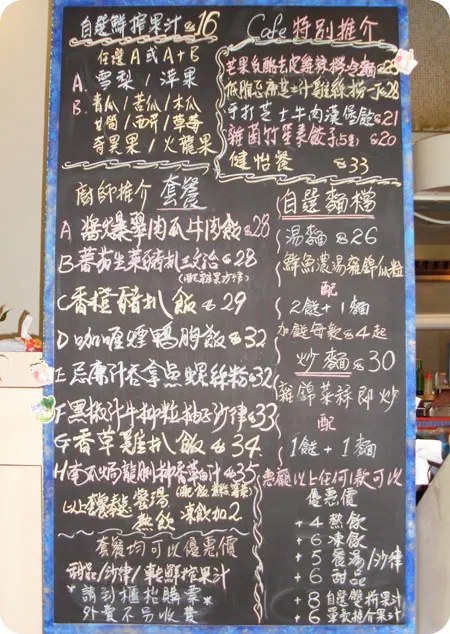 自選鮮榨果汁 $16
任選 A 或 A+B
A. 雪梨 / 蘋果
B. 青瓜 / 苦瓜 / 木瓜
甘筍 / 西芹 / 草莓
奇異果 / 火龍果
Cafe 特別推介
芒果乳酪去皮雞絲撈
低脂忌廉芝士汁雞絲撈一丁 $28
手打芝士牛肉漢堡飽 $21
雞茵竹笙素餃子(5隻) $20
健怡餐 $33
廚師推介 套餐
A 醬爆翠肉瓜牛肉飯 $28
B 蕃茄生菜豬扒三文治 $28
(配雜果沙律)
C 香橙豬扒飯 $29
D 咖喱煙鴨胸飯 $32
E 忌廉汁吞拿魚螺絲粉 $32
F 黑椒汁牛柳粒柚子沙律 $33
G 香草雞扒飯 $34
H 南瓜焗龍脷柳香草汁 $35
以上套餐奉送 餐湯
熱飲 凍飲加2
套餐均可以優惠價
甜品/沙律/車輪鮮榨果汁
*請到櫃枱購票*
外賣不另收費
自選麵檔
湯麵 $26
鮮魚濃湯雜錦瓜粒
配
2餸+1麵
加餸每款 $4起
炒麵 $30
雜錦菜絲即炒
配
1餸+1麵
惠顧以上任何1款可以
優惠價
+4 熱飲
+6 凍飲
+5 餐湯/沙律
+6 甜品
+8 自選雙拼果汁
+6 單款推介果汁